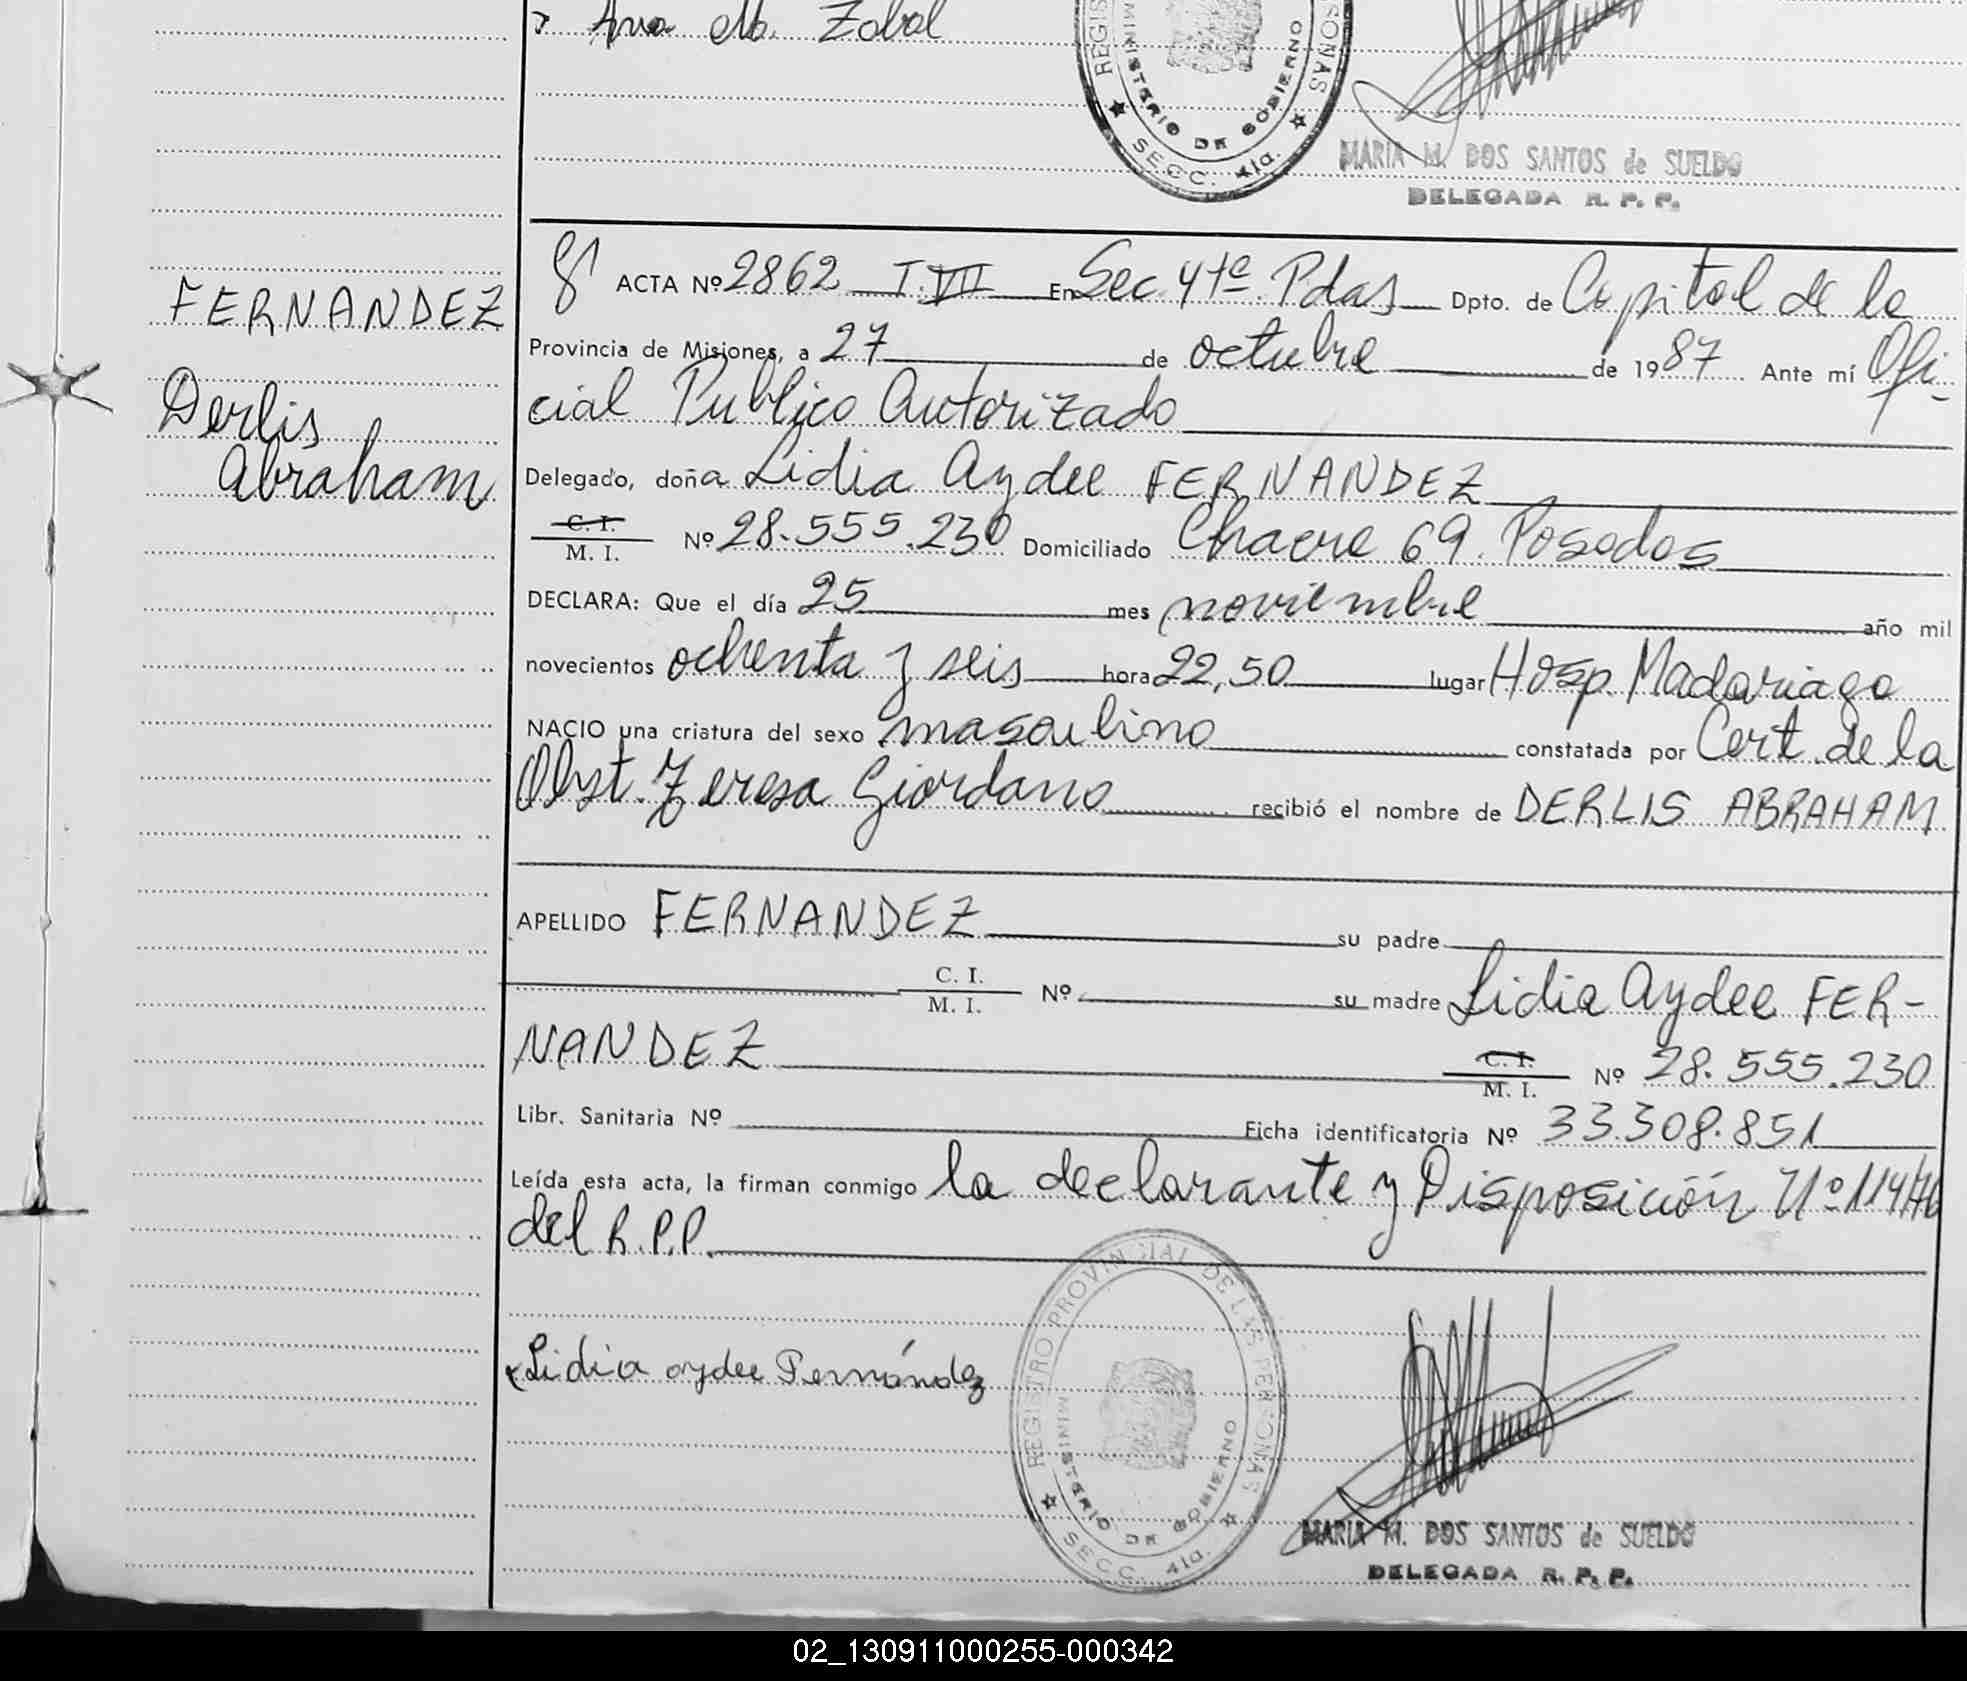 Ana M. Zobal
REGIS
SONAS
MINISTERIO DE GOBIERNO
SECC. 4ta.
MARIA M. DOS SANTOS de SUELDO
DELEGADA R. P. P.
FERNANDEZ
Derlis
Abraham
ACTA Nº 2862 T. VII En Sec. 4ta. Pdas Dpto. de Capital de la
Provincia de Misiones, a 27 de octubre de 1987 Ante mí Ofi-
cial Publico Autorizado
Delegado, doña Lidia Aydee FERNANDEZ
C. I.
M. I. Nº 28.555.230 Domiciliado Chacra 69. Posadas
DECLARA: Que el día 25 mes noviembre año mil
novecientos ochenta y seis hora 22,50 lugar Hosp. Madariaga
NACIO una criatura del sexo masculino constatada por Cert. de la
Obst. Teresa Giordano recibió el nombre de DERLIS ABRAHAM
APELLIDO FERNANDEZ su padre
C. I.
M. I. Nº su madre Lidia Aydee FER-
NANDEZ C. I.
M. I. Nº 28.555.230
Libr. Sanitaria Nº Ficha identificatoria Nº 33.308.851
Leída esta acta, la firman conmigo la declarante y Disposición Nº 114/76
del R.P.P.
REGISTRO PROVINCIAL DE LAS PERSONAS
MINISTERIO DE GOBIERNO
SECC. 4ta.
Lidia aydee Fernández
MARIA M. DOS SANTOS de SUELDO
DELEGADA R. P. P.
02_130911000255-000342